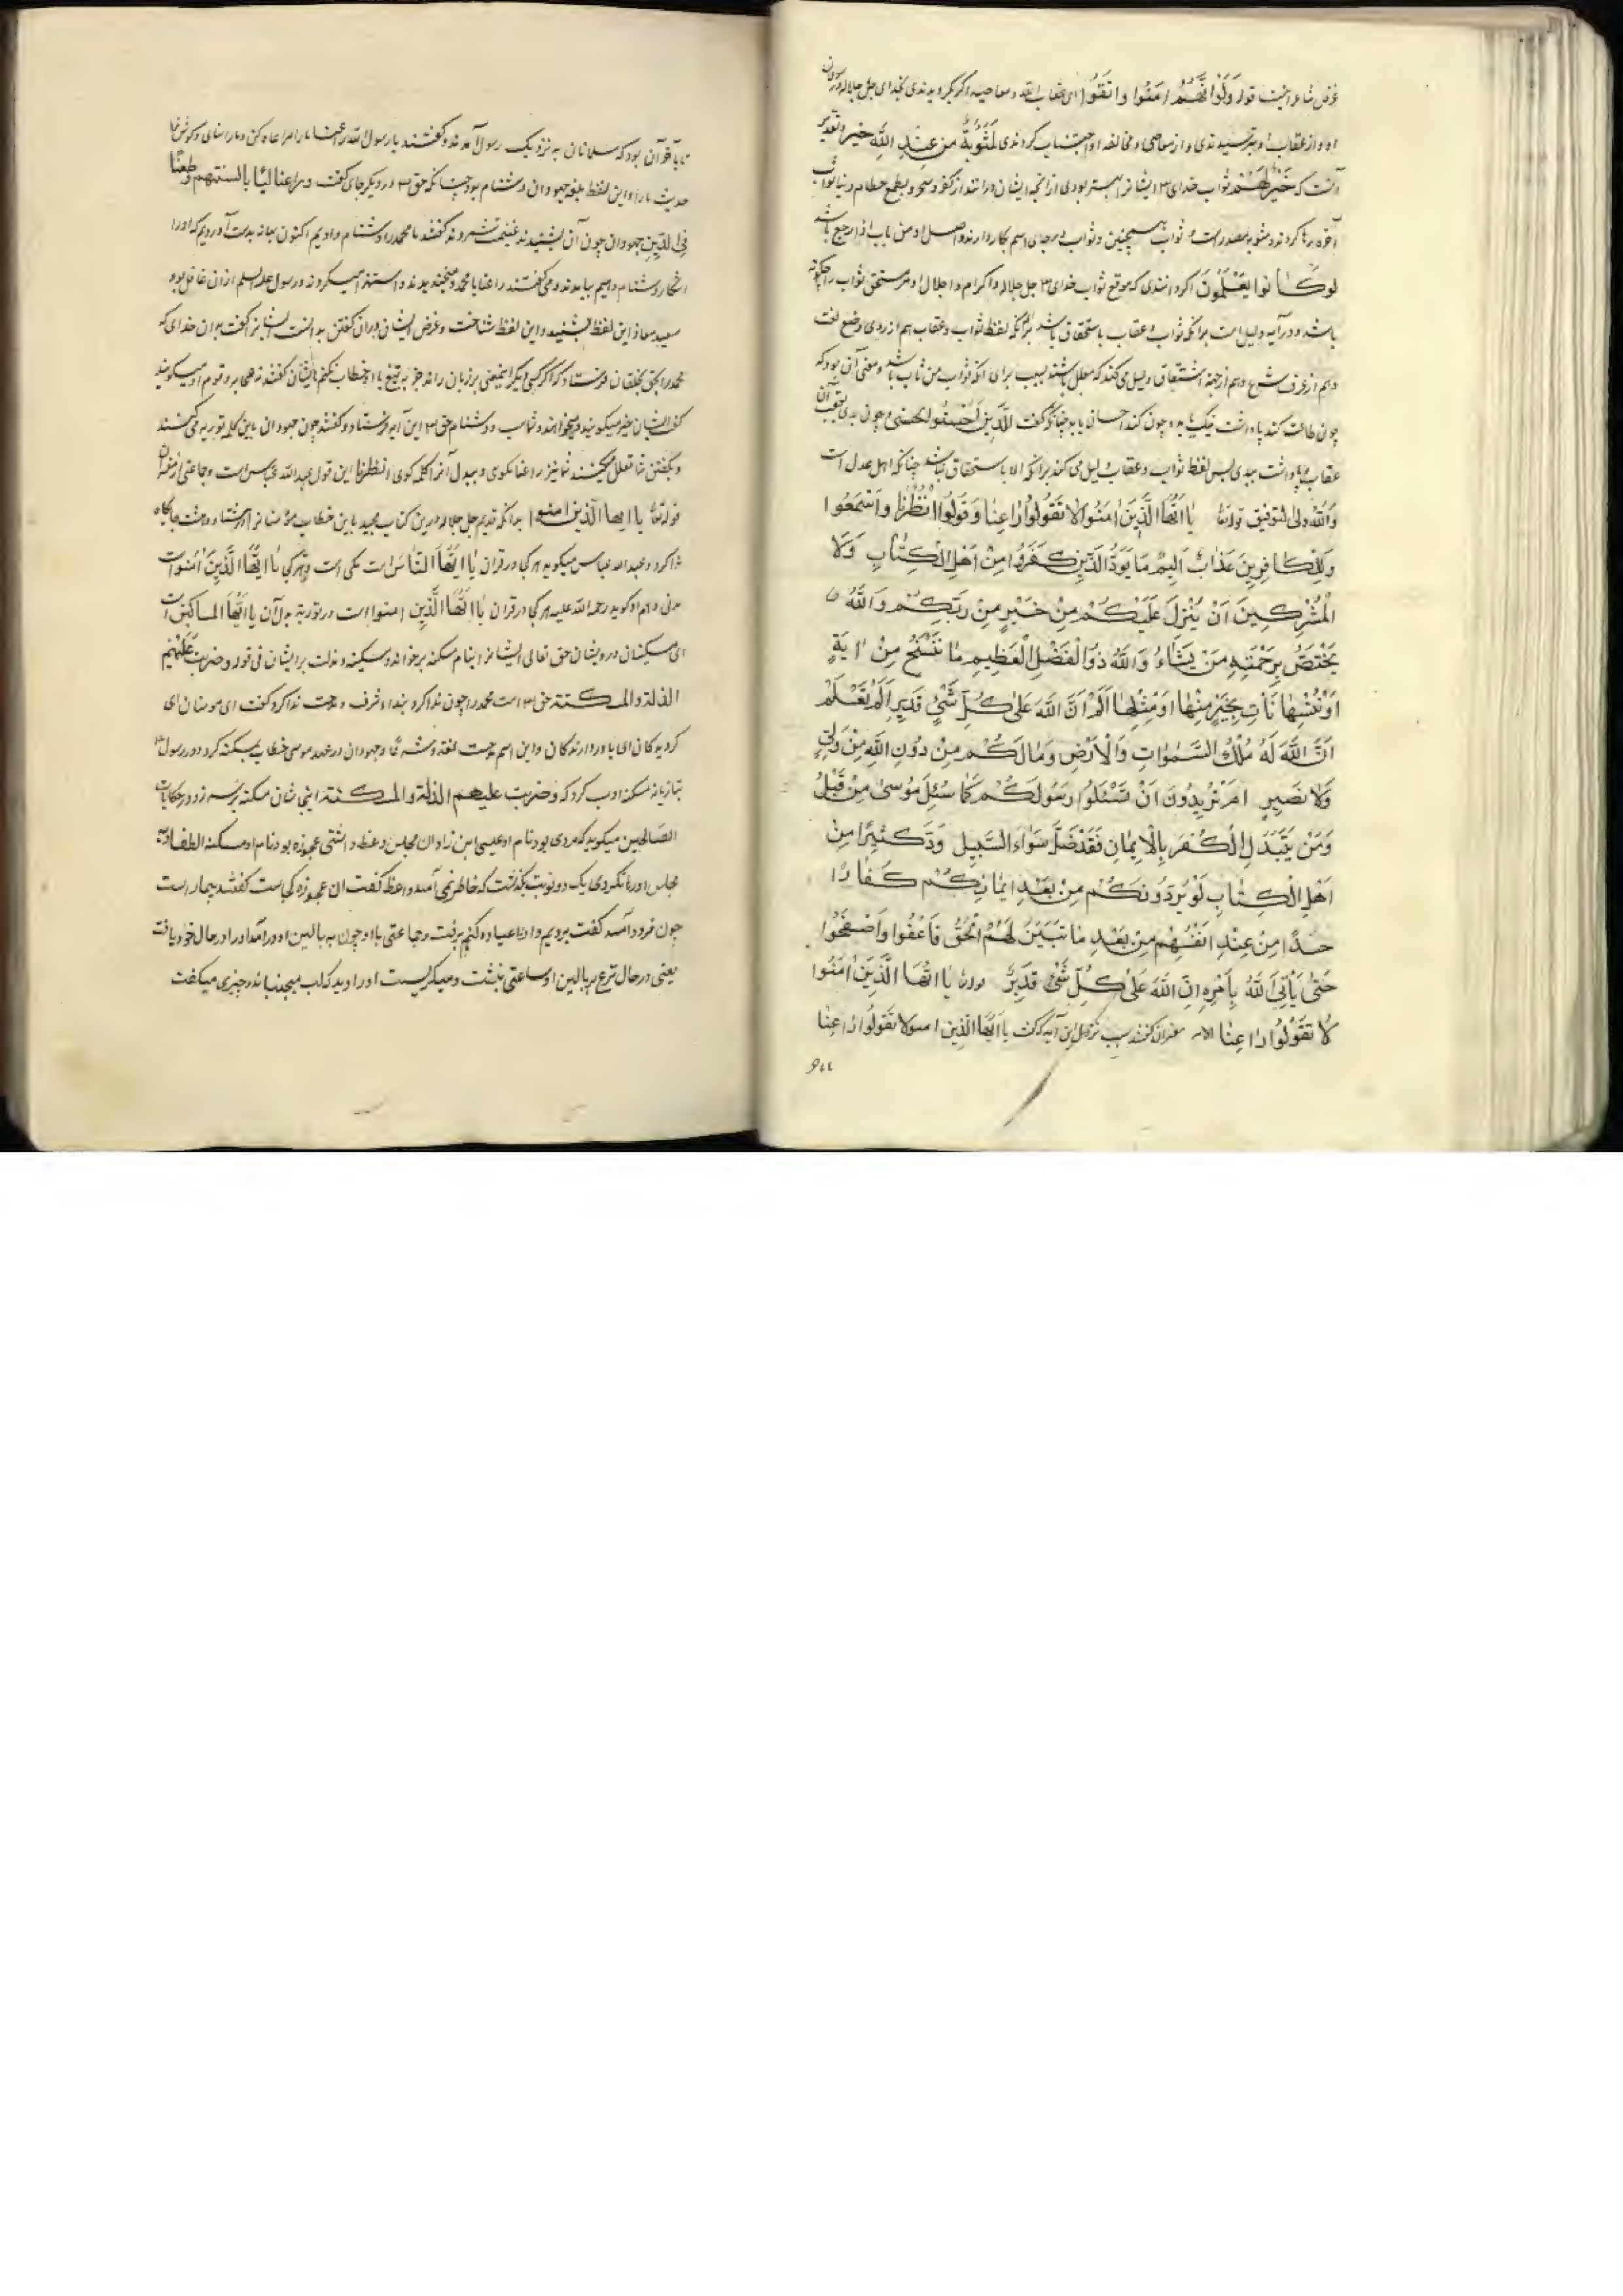 غرض شاعر اینست قوله وَلَوْ اَنَّهُمْ اٰمَنُوا وَاتَّقَوْا ای عقاب الله و معاصیه اگر بگرویدندی بخدای جل جلاله و رسول
او و از عقاب او بترسیدندی و از معاصی و مخالفه او اجتناب کردندی لَمَثُوبَةٌ مِن عِنْدِ اللّٰهِ خیر و تقدیر
آنست که خَیْرٌ لَهُم ثواب خدای ایشانرا بهتر بودی از آنچه ایشان در آنند از کفر و سحر و بطمع حطام دنیا ثواب
آخره رها کردند و مثوبه مصدر است و ثواب همچنین و ثواب بر جای اسم بکار دارند و اصل او من ثاب اذا رجع باشد
لَوْ كَانُوا يَعْلَمُونَ اگر دانندی که موقع ثواب خدای جل جلاله و اکرام و اجلال او مر مستحق ثواب را چگونه
باشد و در آیه دلیل است برآنکه ثواب و عقاب باستحقاق باشد برآنکه لفظ ثواب و عقاب هم از روی وضع لغت
و هم از عرف شرع و هم از جهة اشتقاق دلیل می کند که معلل باشند بسبب برای آنکه ثواب من ثاب باشد و معنی آن بود که
چون طاعت کند پاداشت نیک یابد و چون کند احسان یابد چنانکه گفت لِلَّذِينَ اَحْسَنُوا الْحُسْنیٰ و چون بدی کند
عقاب و پاداشت بیند پس لفظ ثواب و عقاب دلیل می کند برآنکه الا باستحقاق نباشد چنانکه اهل عدل است
وَاللّٰه ولی التوفیق قوله تعا يٰا اَيُّهَا الَّذِينَ اٰمَنُوا لَا تَقُولُوا رٰاعِنٰا وَقُولُوا انْظُرْنٰا وَاسْمَعُوا
وَلِلْكَافِرِينَ عَذَابٌ اَلِيمٌ مَا يَوَدُّ الَّذِينَ كَفَرُوا مِنْ اَهْلِ الْكِتٰابِ وَلَا
الْمُشْرِكِينَ اَنْ يُنَزَّلَ عَلَيْكُمْ مِنْ خَيْرٍ مِنْ رَبِّكُمْ وَاللّٰهُ
يَخْتَصُّ بِرَحْمَتِهِ مَنْ يَشَاءُ وَاللّٰهُ ذُو الْفَضْلِ الْعَظِيمِ مٰا نَنْسَخْ مِنْ اٰيَةٍ
اَوْ نُنْسِهٰا نَاْتِ بِخَيْرٍ مِنْهٰا اَوْ مِثْلِهٰا اَلَمْ تَعْلَمْ اَنَّ اللّٰهَ عَلىٰ كُلِّ شَيْءٍ قَدِيرٌ اَلَمْ تَعْلَمْ
اَنَّ اللّٰهَ لَهُ مُلْكُ السَّمٰوٰاتِ وَالْاَرْضِ وَمٰا لَكُمْ مِنْ دُونِ اللّٰهِ مِنْ وَلِيٍّ
وَلَا نَصِيرٍ اَمْ تُرِيدُونَ اَنْ تَسْئَلُوا رَسُولَكُمْ كَمٰا سُئِلَ مُوسىٰ مِنْ قَبْلُ
وَمَنْ يَتَبَدَّلِ الْكُفْرَ بِالْاِيمٰانِ فَقَدْ ضَلَّ سَوٰاءَ السَّبِيلِ وَدَّ كَثِيرٌ مِنْ
اَهْلِ الْكِتٰابِ لَوْ يَرُدُّونَكُمْ مِنْ بَعْدِ اِيمٰانِكُمْ كُفَّارًا
حَسَدًا مِنْ عِنْدِ اَنْفُسِهِمْ مِنْ بَعْدِ مٰا تَبَيَّنَ لَهُمُ الْحَقُّ فَاعْفُوا وَاصْفَحُوا
حَتّٰى يَأْتِيَ اللّٰهُ بِاَمْرِهِ اِنَّ اللّٰهَ عَلىٰ كُلِّ شَيْءٍ قَدِيرٌ قوله تعا يٰا اَيُّهَا الَّذِينَ اٰمَنُوا
لَا تَقُولُوا رٰاعِنٰا الآیه مفسران گفتند سبب نزول این آیه که گفت يا اَيُّهَا الَّذِينَ امنوا لا تَقُولُوا رٰاعِنٰا
تا بآخر آن بود که مسلمانان به نزدیک رسول آمدند و گفتند یا رسول الله راعنا ما را مراعاه کن
حدیث ما را و این لفظ بلغه جهودان دشنام بود چنانکه حق در دیگر جای گفت و راعنا لیًا بالسنتهم و طعنًا
فِی الدّینِ جهودان چون آن بشنیدند غنیمت شمردند گفتند ما محمد را دشنام دادیم اکنون بهانه بدست آوردیم که او را
آشکارا دشنام دهیم بیامدند و می گفتند راعنا یا محمد و میخندیدند و استهزا میکردند و رسول علیه السلم از آن غافل بود
سعید معاذ این لفظ بشنید و این لفظ شناخت و غرض ایشان در آن گفتن بدانست ایشانرا گفت بدان خدای که
محمد را بحق بخلقان فرستاد که اگر کسی دیگر بر زبان راند جز به تیغ با او خطاب نکنم
کفر ایشان و دشنام حق این آیه فرستاد و گفتند چون جهودان باین کلمه توریه می کنند
و بگفتن شما تعلل میکنند شما نیز راعنا مگوی و ببدل آن کلمه گوی انظرنا این قول عبد الله عباس است و جماعتی از مفسران
قوله تعا یا ایها الذین امنوا بدانکه قدیم جل جلاله در این کتاب مجید باین خطاب
ندا کرد و عبد الله عباس میگوید هر کجا در قران يٰا اَيُّهَا النّٰاسُ است مکی است و هر کجا يٰا اَيُّهَا الَّذِينَ اٰمَنُوا است
مدنی و هم او گوید رحمة الله علیه هر کجا در قران يٰا اَيُّهَا الَّذِينَ امنوا است در توریة بدل آن یا اَيُّهَا المساکین است
ای مسکینان درویشان حق تعالی ایشانرا بنام مسکنه برخواند و مسکنه و مذلت بر ایشان فی قوله و ضربت علیهم
الذلة والمسكنة حق امت محمد را چون ندا کرد بندا شرف و مدحت ندا کرد گفت ای مومنان ای
گرویدگان ای باور دارندگان و این اسم مدحت لغة و شرعًا و جهودان در عهد موسی خطاب بمسکنه کرد و در رسول
بتازیانه مسکنه ادب کرد که وضربت علیهم الذلة والمسكنة در حکایات
الصالحین میگوید که مردی بود نام او عیسی ابن زادان مجلس وعظ داشتی عجوزه بود نام او مسکنه الطفاویه
مجلس او رها نکردی یک دو نوبت بگذشت که حاضر نمی آمد واعظ گفت ان عجوزه کجاست گفتند بیمار است
چون فرود آمد گفت برویم و او را عیاده کنیم برفت و جماعتی با او چون به بالین او درآمد او را در حال خود یافت
یعنی در حال نزع بر بالین او ساعتی بنشست و میگریست او را دید که لب میجنباند و چیزی میگفت